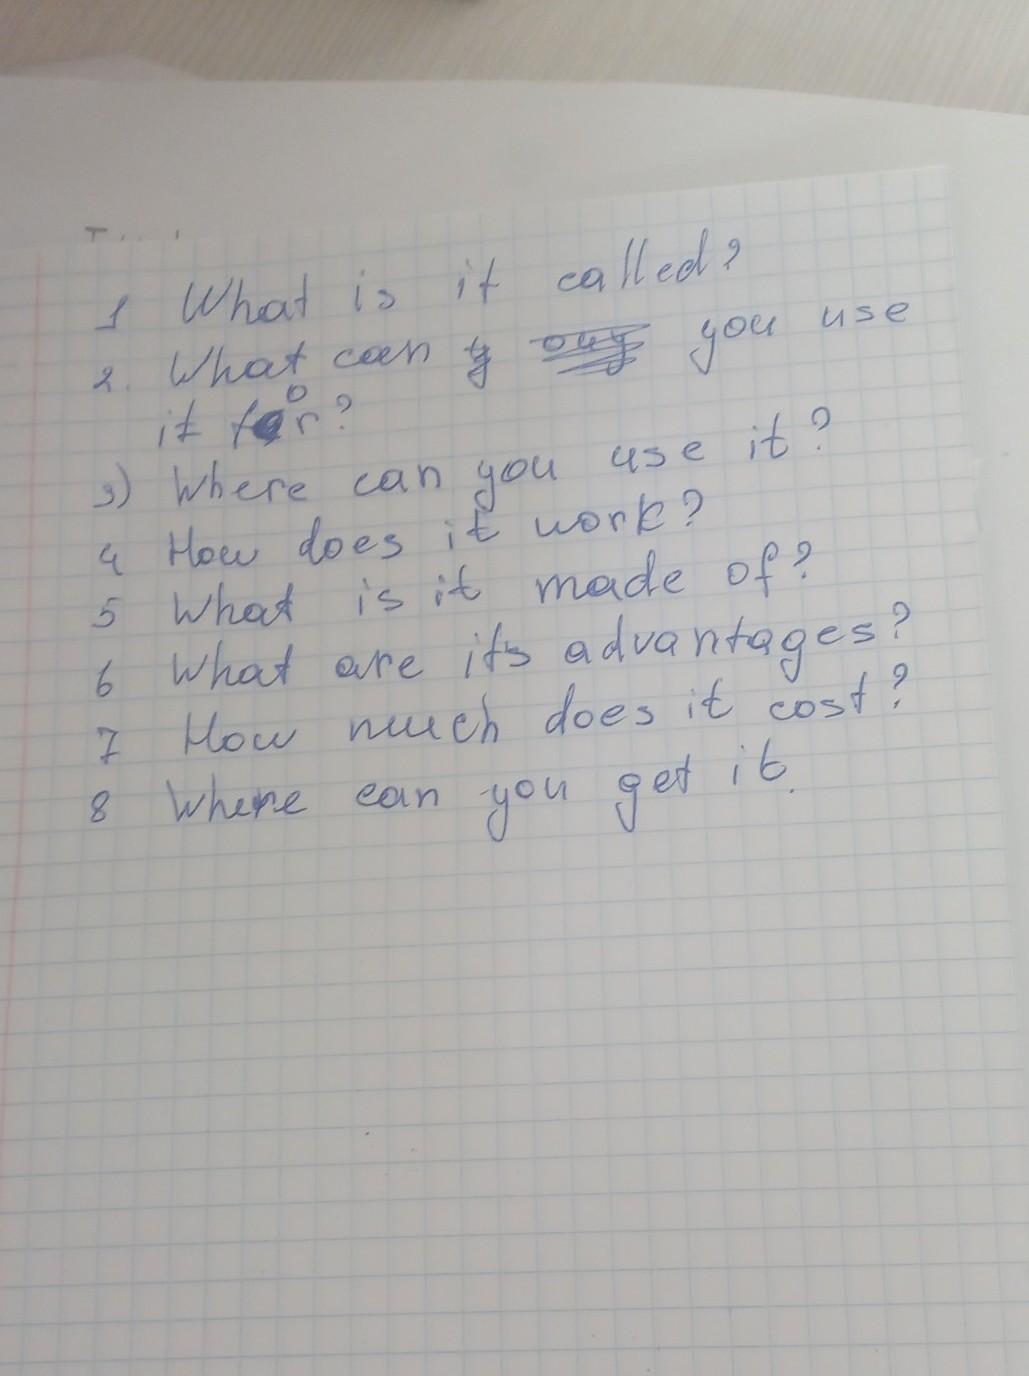 1 What is it called?
2. What can you use
it for?
3) Where can you use it?
4 How does it work?
5 What is it made of?
6 What are it's advantages?
7 How much does it cost?
8 Where can you get it.